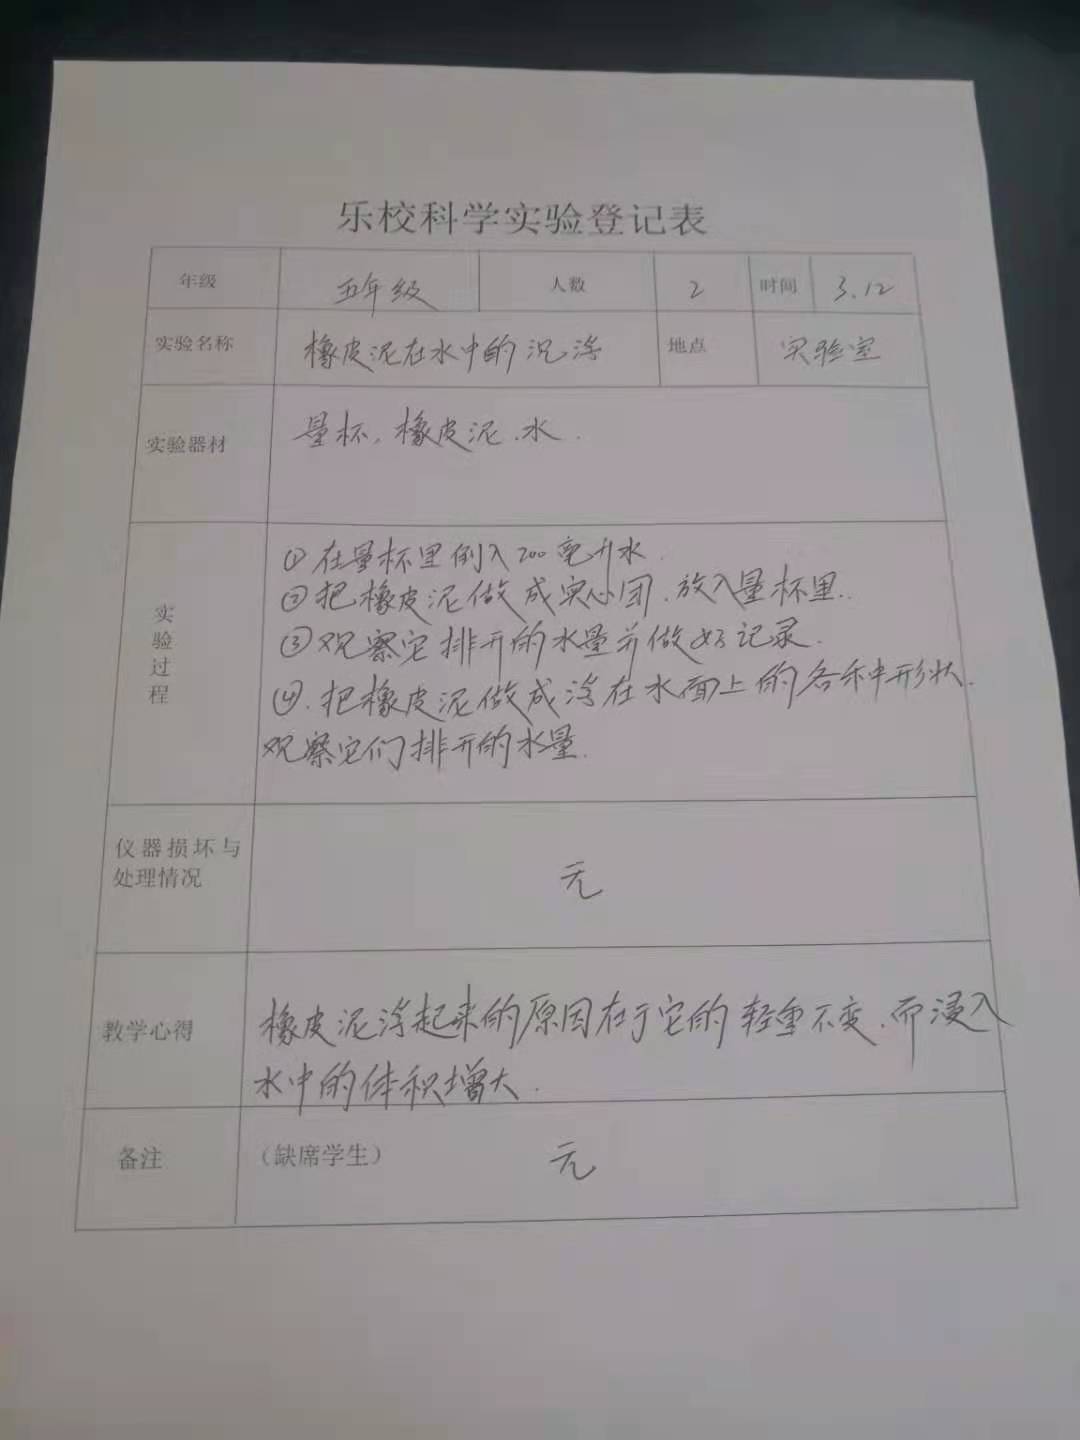 乐校科学实验登记表
年级 五年级 人数 2 时间 3.12
实验名称 橡皮泥在水中的沉浮 地点 实验室
实验器材 量杯、橡皮泥、水.
实验过程
①在量杯里倒入200毫升水.
②把橡皮泥做成实心团.放入量杯里.
③观察它排开的水量并做好记录.
④.把橡皮泥做成浮在水面上的各种形状.
观察它们排开的水量.
仪器损坏与
处理情况
无
教学心得
橡皮泥浮起来的原因在于它的轻重不变.而浸入
水中的体积增大.
备注 (缺席学生) 无